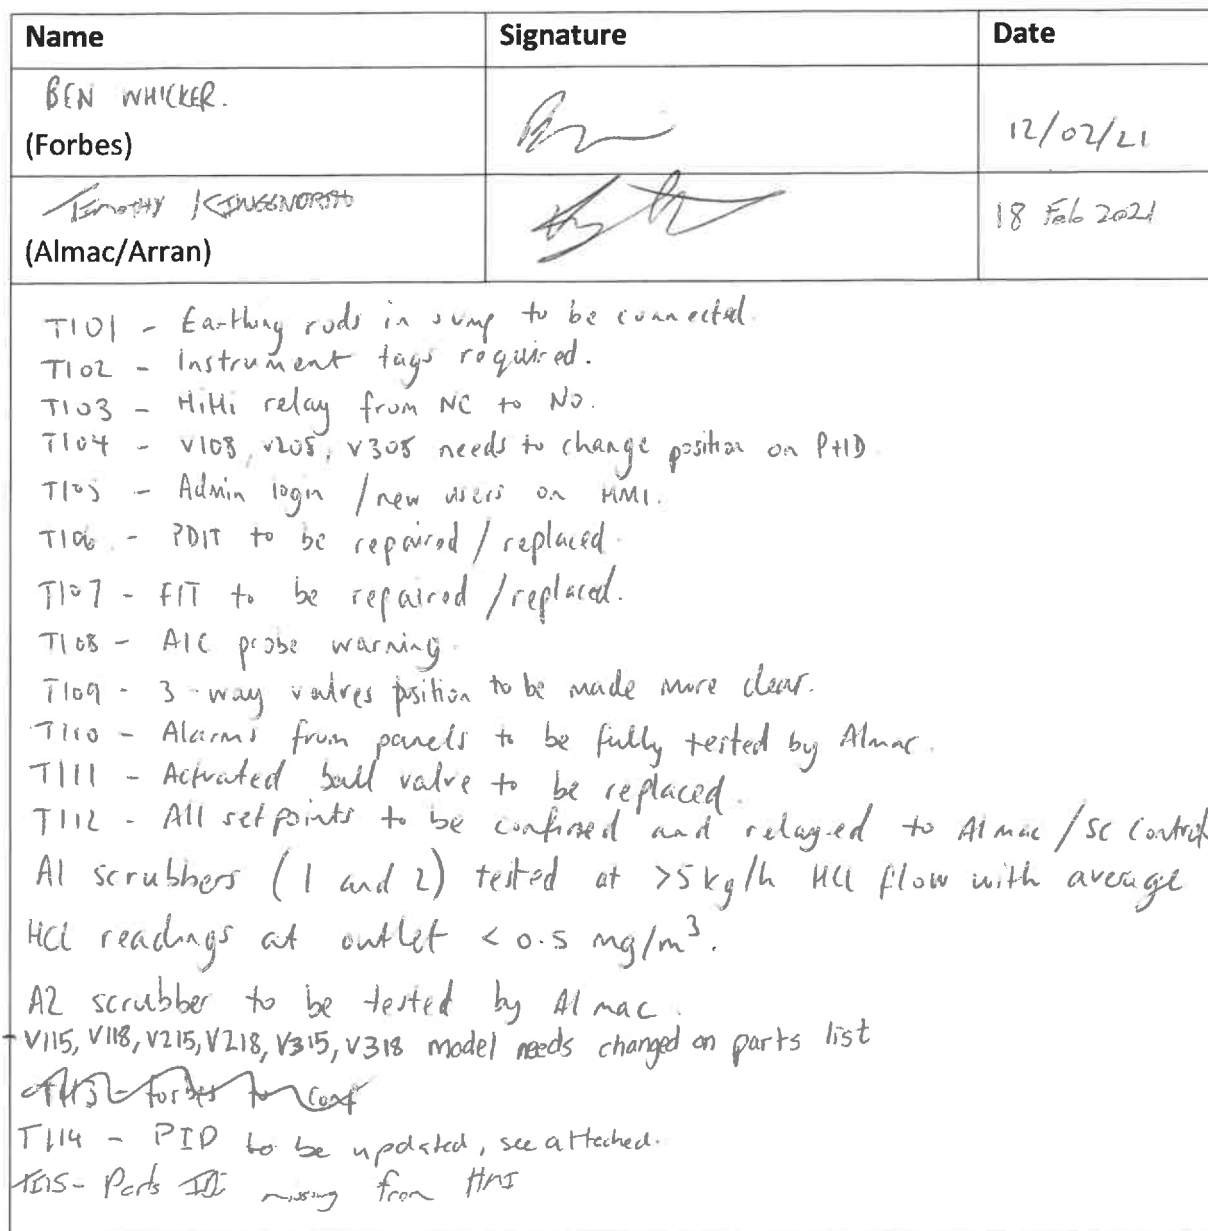 Name Signature Date
BEN WHICKER.
(Forbes)
12/02/21
TIMOTHY
(Almac/Arran)
18 Feb 2021
T101 - Earthing rods in sump to be connected.
T102 - Instrument tags required.
T103 - HiHi relay from NC to NO.
T104 - V108, V208, V308 needs to change position on P+ID
T105 - Admin login / new users on HMI.
T106 - PDIT to be repaired / replaced.
T107 - FIT to be repaired / replaced.
T108 - AIC probe warning.
T109 - 3-way valves position to be made more clear.
T110 - Alarms from panels to be fully tested by Almac.
T111 - Actuated ball valve to be replaced.
T112 - All setpoints to be confirmed and relayed to Almac / SC Controls
A1 scrubbers (1 and 2) tested at >5kg/h HCl flow with average
HCl readings at outlet < 0.5 mg/m³.
A2 scrubber to be tested by Almac.
- V115, V118, V215, V218, V315, V318 model needs changed on parts list
T113 - Forbes to conf
T114 - PID to be updated, see attached.
T115 - Parts missing from HMI